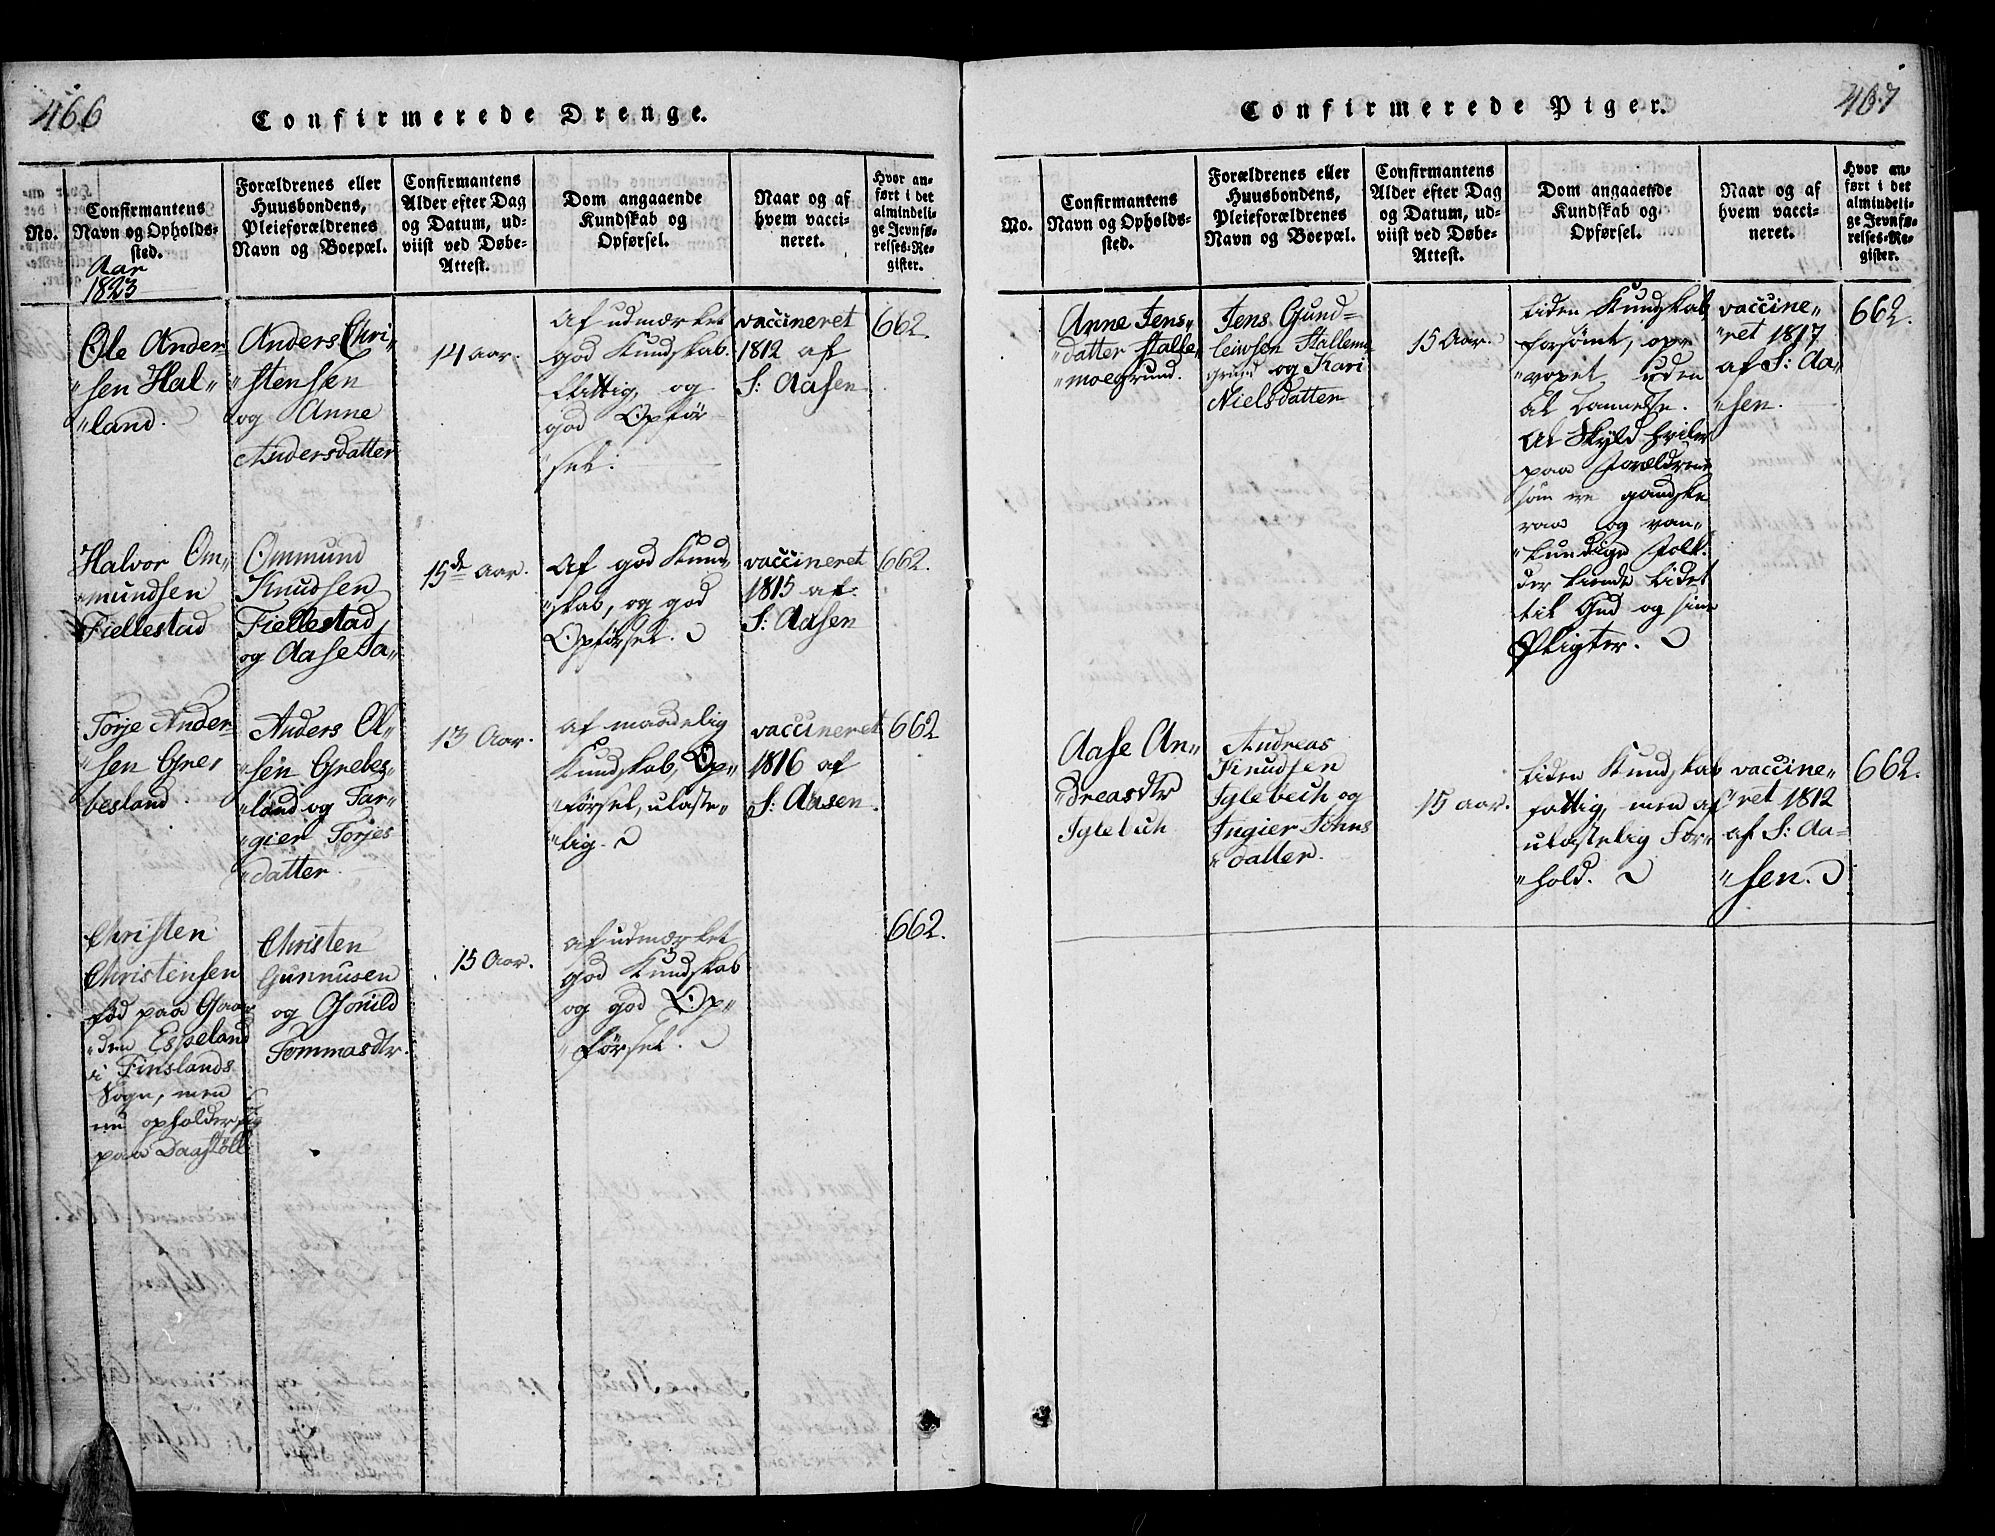 466
Confirmerede Drenge.
No.
Confirmantens
Navn og Opholds-
sted.
Forældrenes eller
Huusbondens,
Pleieforældrenes
Navn og Boepæl.
Confirmantens
Alder efter Dag
og Datum, ud-
viist ved Døbe-
Attest.
Dom angaaende
Kundskab og
Opførsel.
Naar og af
hvem vacci-
neret.
Hvor an-
ført i det
almindeli-
ge Jevnfø-
relses-Re-
gister.
Aar
1823
Ole Ander-
"sen Hal-
"land.
Anders Chri-
"stensen
og Anne
Andersdatter
14 aar.
Af udmærket
god Kundskab.
flittig, og
god Opfør
sel.
vaccineret
1812 af
S: Aasen
662.
Halvor Om-
"mundsen
Fiellestad
Ommund
Knudsen
Fiellestad
og Aase Ta-
15de aar.
Af god Kund
"skab, og god
Opførsel.
vaccineret
1815 af
S: Aasen
662.
Torje Ander-
"sen Gre-
besland.
Anders Ol-
"sen Grebes-
"land og Tar-
gier Torjes
"datter.
13 Aar.
af maadelig
Kundskab, Op-
"førsel, ulaste-
"lig.
vaccineret
1816 af
S: Aasen.
662
Christen
Christensen
fød paa Gaar
"den Espeland
i Finslands
Sogn, men
nu opholder sig
paa Daastöll
Christen
Gunnusen
og Gonild
Tommasdtr.
15 Aar.
af udmærket
god Kundskab
og god Op-
"førsel.
662.
467
Confirmerede Piger.
No.
Confirmantens
Navn og Opholds-
sted.
Forældrenes eller
Huusbondens,
Pleieforældrenes
Navn og Boepæl.
Confirmantens
Alder efter Dag
og Datum, ud-
viist ved Døbe-
Attest.
Dom angaaende
Kundskab og
Opførsel.
Naar og af
hvem vacci-
neret.
Hvor an-
ført i det
almindeli-
ge Jevnfø-
relses-Re-
gister.
Anne Jens-
"datter Stalle-
"moegrund.
Jens Gund-
leivsen Stallemo
grund og Kari
Nielsdatter
15 Aar.
liden Kundskab,
forsømt, op-
"voxet uden
al Dannelse.
Al Skyld hviler
paa Forældrene
som ere gandske
raae og van-
"kundige Folk.
der kiende lidet
til Gud og sine
Pligter.
vaccine-
"ret 1817
af S: Aa-
"sen.
662.
Aase An-
"dreasdtr
Iglebech
Andreas
Knudsen
Iglebech og
Ingier Johns
"datter.
15 aar.
liden Kundskab
fattig, men af
ulastelig For-
"hold.
vaccine-
"ret 1812
af S: Aa-
"sen.
662.